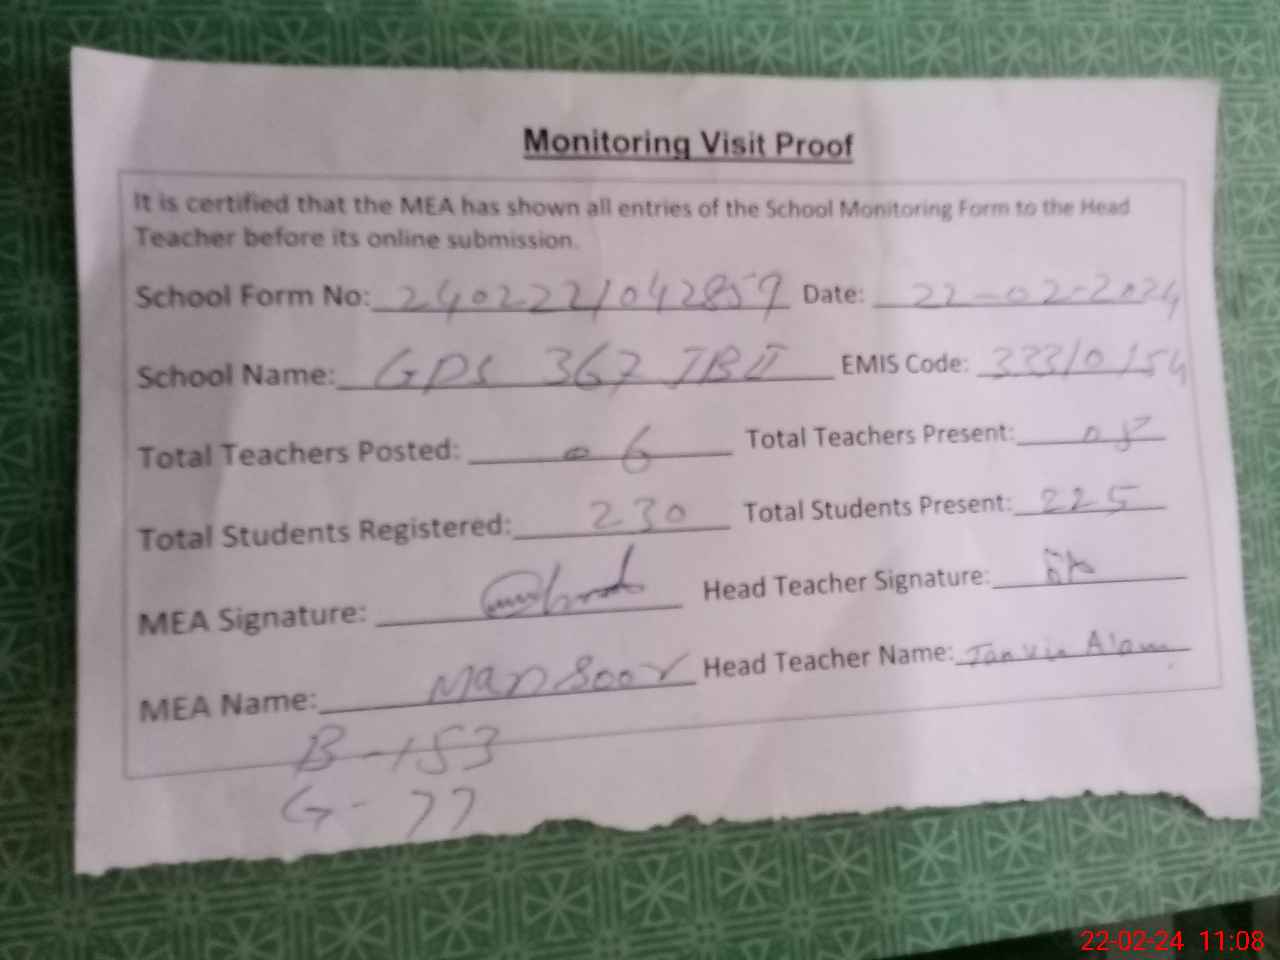 Monitoring Visit Proof
It is certified that the MEA has shown all entries of the School Monitoring Form to the Head
Teacher before its online submission.
School Form No: 2402221042859 Date: 22-02-2024
School Name: GPS 367 JB II EMIS Code: 33310154
Total Teachers Posted: 06 Total Teachers Present: 05
Total Students Registered: 230 Total Students Present: 225
MEA Signature: Head Teacher Signature:
MEA Name: Mansoor Head Teacher Name: Tanvir Alam
B-153
G-77
22-02-24 11:08